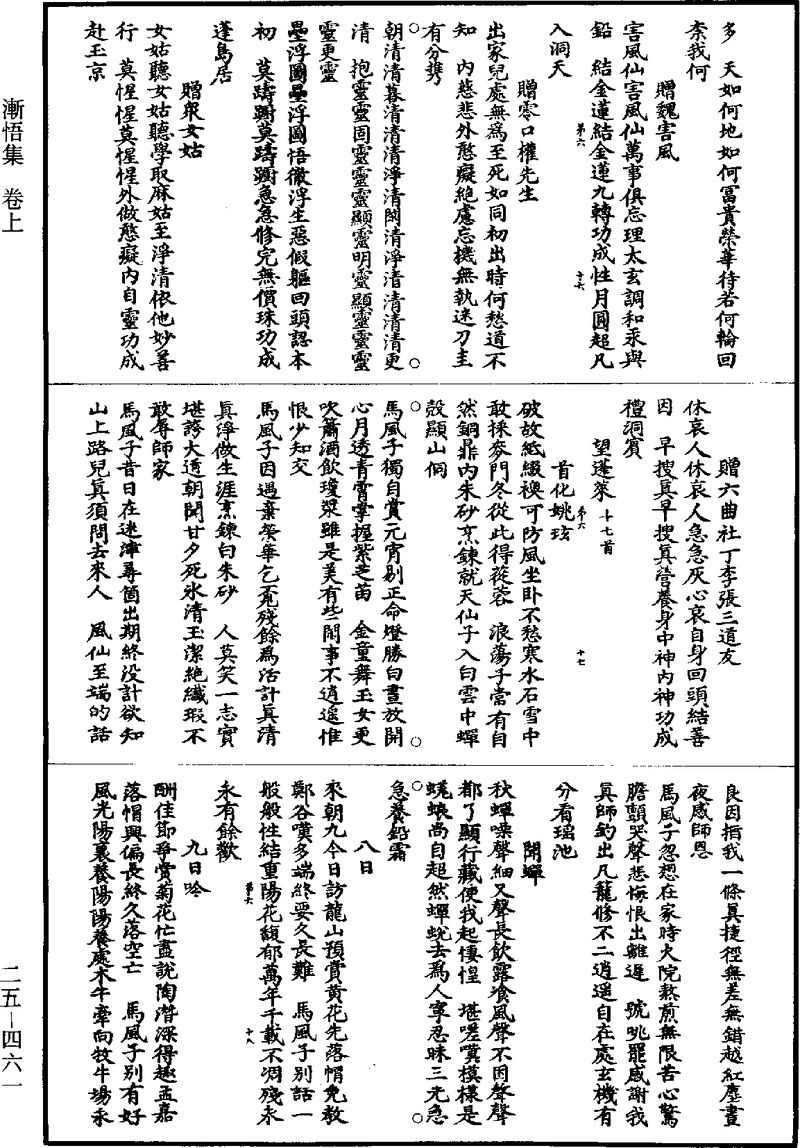 多　天如何地如何富貴榮華待若何輪回
柰我何
贈魏害風
害風仙害風仙萬事俱忘理太玄調和汞與
鉛　結金蓮結金蓮九轉功成性月圓超凡
第六　十六
入洞天
贈零口權先生
出家兒處無爲至死如同初出時何愁道不
知　內慈悲外憨癡絕慮忘機無執迷刀圭
有分擕
○　○
朝清清暮清清清淨清閑清淨清清清清更
清　抱靈靈固靈靈靈顯靈明靈顯靈靈靈
靈更靈
壘浮圖壘浮圖悟徹浮生惡假軀回頭認本
初　莫躊躕莫躊躕急急修完無價珠功成
蓬島居
贈衆女姑
女姑聽女姑聽學取麻姑至淨清依他妙善
行　莫惺惺莫惺惺外做憨癡內自靈功成
赴玉京
贈六曲社丁李張三道友
休哀人休哀人急急灰心哀自身回頭結善
因　早搜眞早搜眞營養身中神內神功成
禮洞賓
望蓬萊　十七首
首化姚玹
第六　十七
破故紙綴襖可防風坐卧不愁寒水石雪中
敢採麥門冬從此得蓯蓉　浪蕩子當有自
然銅鼎內朱砂烹鍊就天仙子入白雲中蟬
殼顯山侗
○　○
馬風子獨自賞元宵别正命燈勝白晝放開
心月透青霄掌握紫芝苗　金童舞玉女更
吹簫酒飲瓊漿雖是美有些閑事不逍遥惟
恨少知交
馬風子因遇棄榮華乞覔殘餘爲活計眞清
眞淨做生涯烹鍊白朱砂　人莫笑一志實
堪誇大道朝聞甘夕死氷清玉潔絕纖瑕不
敢辱師家
馬風子昔日在迷津尋箇出期終沒計欲知
山上路兒眞須問去來人　風仙至端的話
良因指我一條眞捷徑無差無錯越紅塵晝
夜感師恩
馬風子忽想在家時火院熬煎無限苦心驚
膽顫哭聲悲悔恨出離遲　號咷罷感謝我
眞師釣出凡籠修不二逍遥自在處玄機有
分看瑶池
聞蟬
秋蟬噪聲細又聲長飲露飡風聲不困聲聲
都了顯行藏使我起悽惶　堪嗟嘆模樣是
蜣蜋尚自超然蟬蛻去爲人寧忍昧三光急
急養鉛霜
○　○
八日
來朝九今日訪龍山預賞黄花先落帽免教
鄭谷嘆多端終要久長難　馬風子别話一
般般性結重陽花馥郁萬年千載不凋殘永
第六　十八
永有餘歡
九日吟
酬佳節爭賞菊花忙盡説陶潛深得趣孟嘉
落帽興偏長終久落空亡　馬風子别有好
風光陽裏養陽陽養處木牛牽向牧牛場永
漸悟集　卷上
二五—四六一